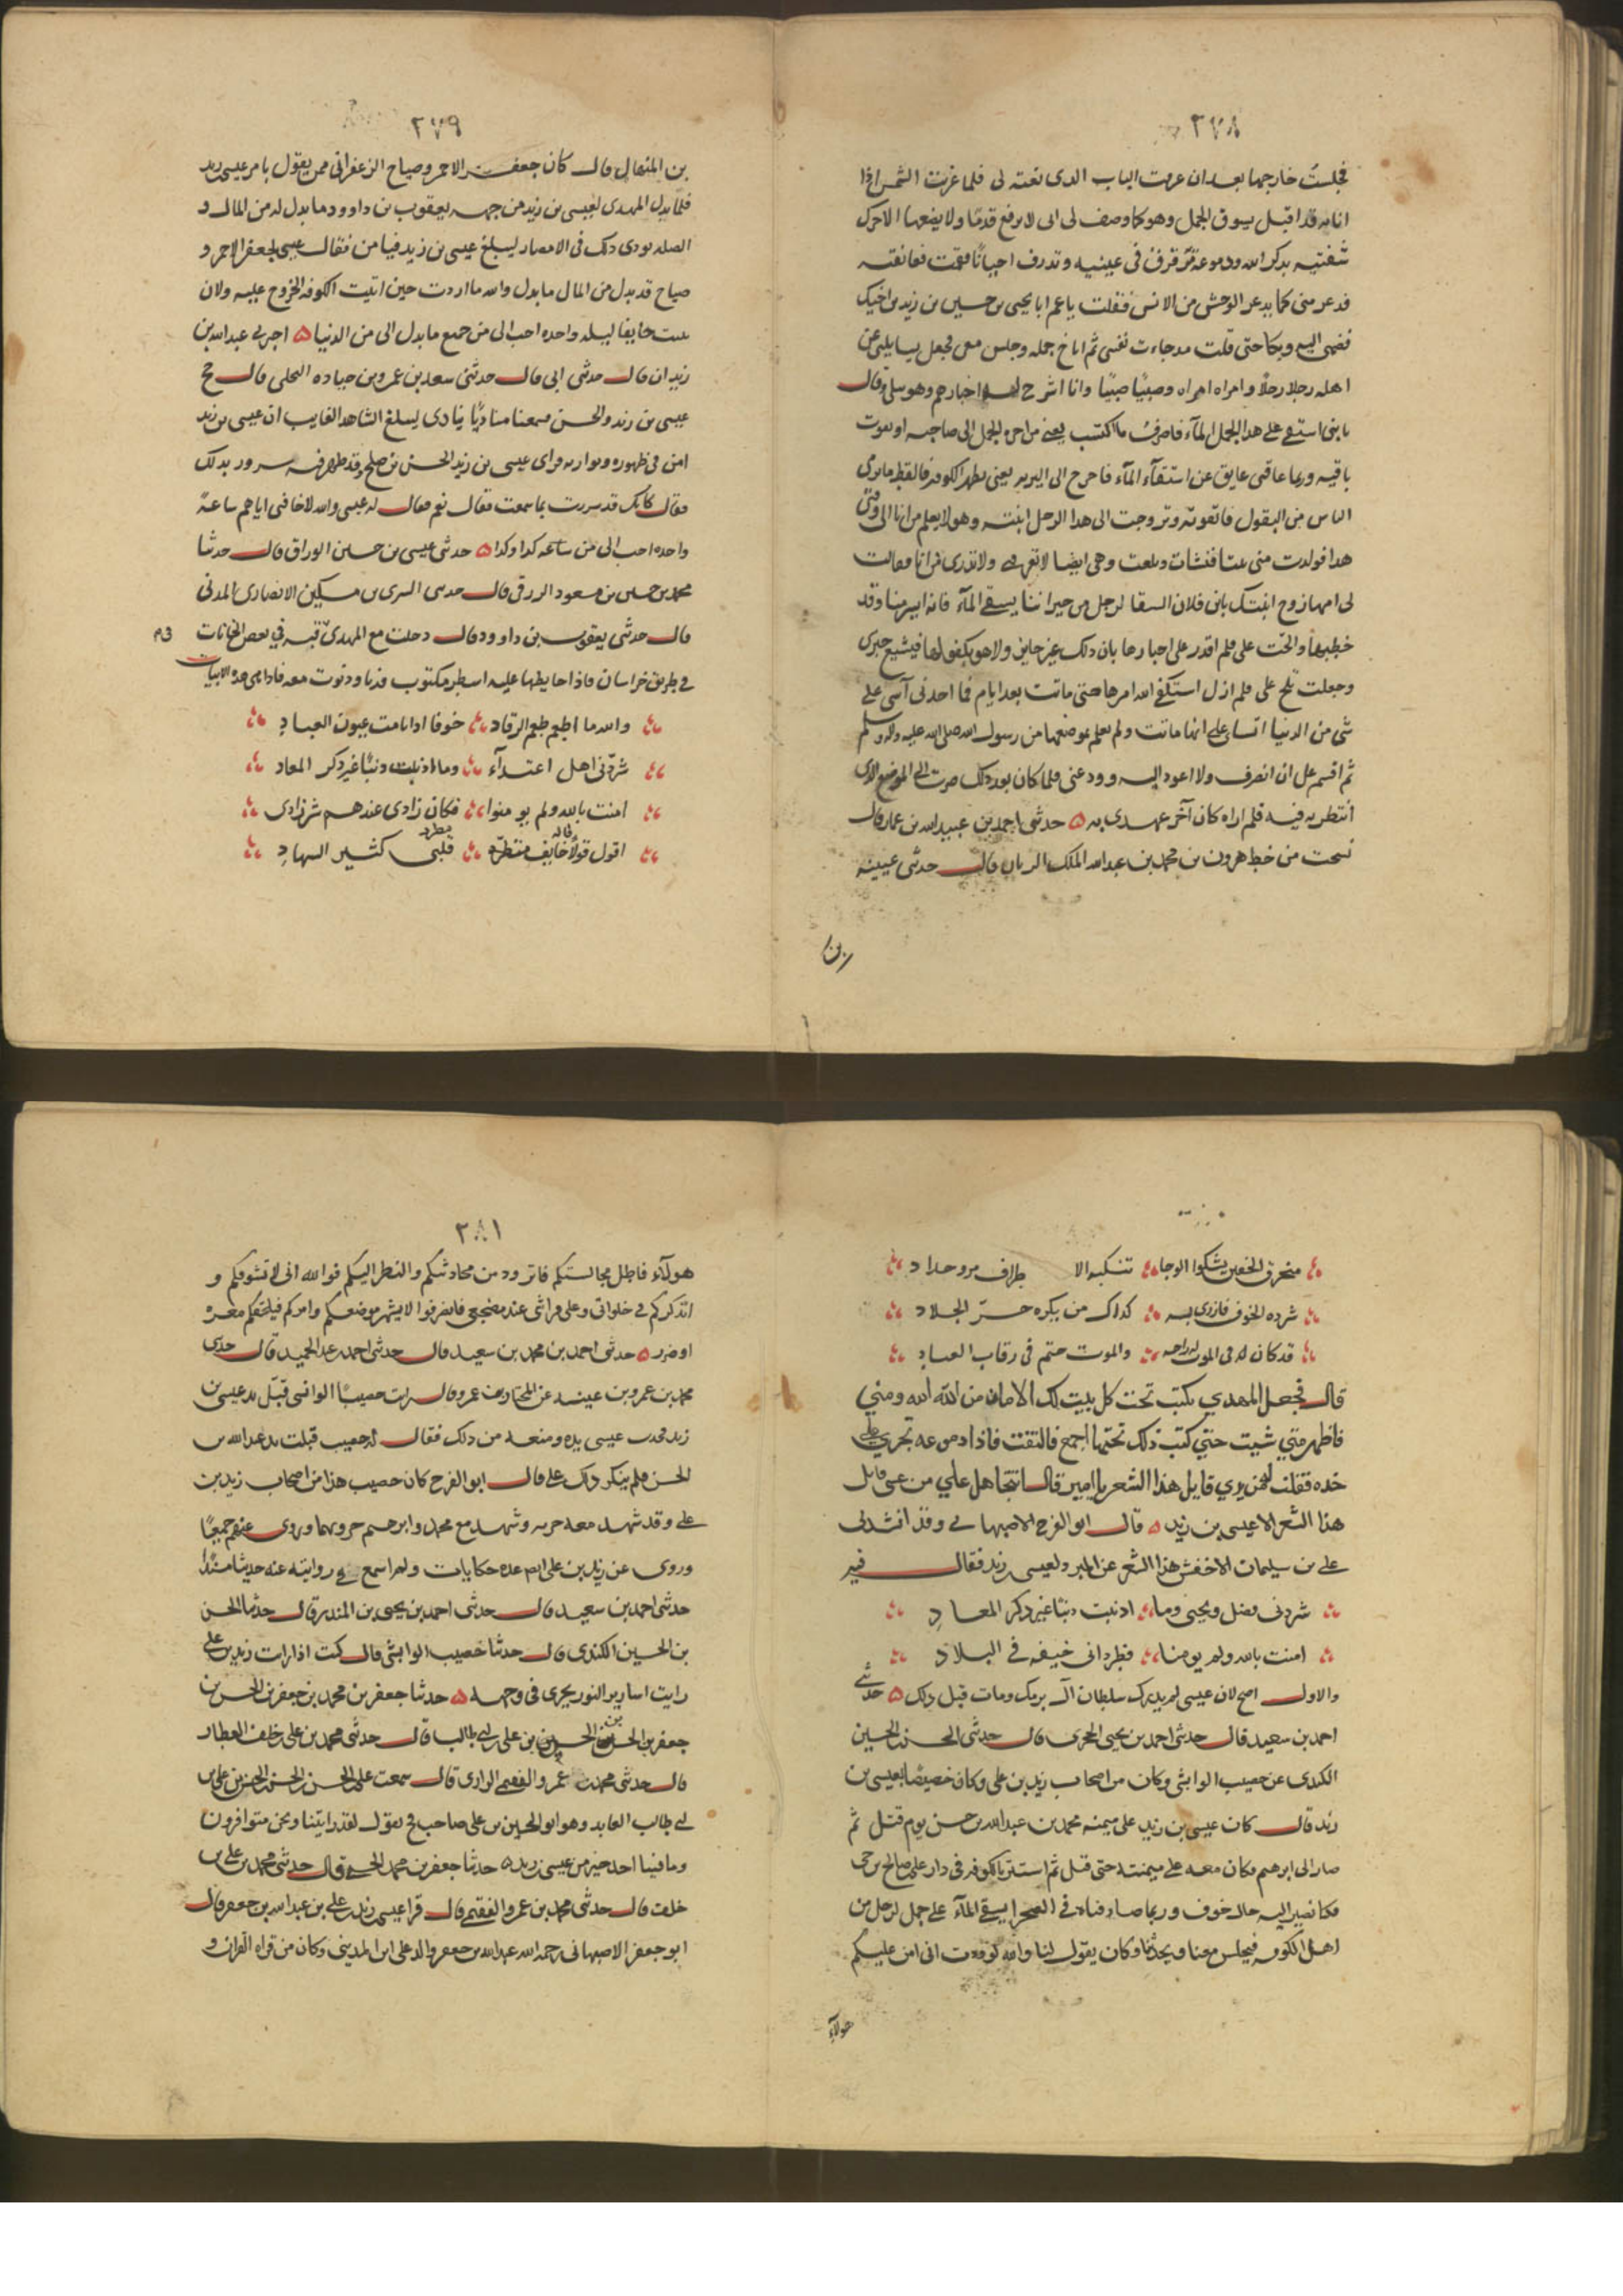 ٢٧٨
فجلست خارجها بعد ان عرفت الباب الذى نعته لى فلما غربت الشمس اذا
انا به قد اقبل يسوق الجمل وهو كما وصف لى ابى لا يرفع قدمًا ولا يضعها الا حرك
شفتيه بذكر الله ودموعه تترقرق فى عينيه وتذرف احيانًا فقمت فعانقته
فذعر منى كما يذعر الوحش من الانس فقلت يا عم انا يحيى بن حسين بن زيد بن اخيك
فضمنى اليه وبكا حتى قلت قد جاءت نفسى ثم اناخ جمله وجلس معى فجعل يسايلنى عن
اهله رجلا رجلا وامراه امراه وصبيًا صبيًا وانا اشرح له اخبارهم وهو يبكى وقال
يا بنى استقى على هذا الجمل المآء فاصرف ما اكتسب يعنى من اجرة الجمل الى صاحبه واتقوت
باقيه وربما عاقنى عايق عن استقآء المآء فاخرج الى البريه يعنى بظهر الكوفه فالقط ما يرمى
الناس من البقول فاتقوته وتزوجت الى هذا الرجل ابنته وهو لا يعلم من انا الى وقتى
هذا فولدت منى بنتا فنشات وبلغت وهى ايضا لا تعرفنى ولا تدرى من انا فقالت
لى امها زوج ابنتك بابن فلان السقا لرجل من جيراننا يسقى المآء فانه ايسر منا وقد
خطبها والحت على فلم اقدر على اخبارها بان ذلك غير جايز ولا هو بكفو لها فيشيع خبرى
وجعلت تلح على فلم ازل استكفى الله امرها حتى ماتت بعد ايام فما احدنى آسى على
شى من الدنيا اساى على انها ماتت ولم تعلم بموضعها من رسول الله صلى الله عليه واله وسلم
ثم اقسم على ان انصرف ولا اعود اليه وودعنى فلما كان بعد ذلك صرت الى الموضع الذى
انتظرته فيه فلم اراه كان آخر عهدى به ۵ حدثنى احمد بن عبيد الله بن عمار قال
نسخت من خط هرون بن محمد بن عبد الملك الزيات قال حدثنى عيينه
بن
٢٧٩
بن المنهال قال كان جعفر الاحمر وصباح الزعفرانى ممن يقول بامر عيسى بن زيد
فلما بذل المهدى لعيسى بن زيد من جهه يعقوب بن داوود ما بذل له من المال و
الصله نودى بذلك فى الامصار ليبلغ عيسى بن زيد فيامن فقال عيسى لجعفر الاحمر و
صباح قد بذل من المال ما بذل والله ما اردت حين اتيت الكوفه الخروج عليه ولان
ابيت خايفا ليله واحده احب الى من جميع ما بذل الى من الدنيا ۵ اخبرنى عبد الله بن
زيدان قال حدثنى ابى قال حدثنى سعد بن عمر بن جناده البجلى قال حج
عيسى بن زيد والحسن فسمعنا مناديًا ينادى ليبلغ الشاهد الغايب ان عيسى بن زيد
امن فى ظهوره وتواريه فراى عيسى بن زيد الحسن بن صلح وقد ظهر فيه سرور بذلك
فقال كانك قد سررت بما سمعت فقال نعم فقال له عيسى والله لاخافتى اياهم ساعة
واحده احب الى من ساعه كذا وكذا ۵ حدثنى عيسى بن حسين الوراق قال حدثنا
محمد بن حسين بن مسعود الزرقى قال حدثنى السرى بن مسكين الانصارى المدنى
قال حدثنى يعقوب بن داوود قال دخلت مع المهدى قبه فى بعض الخانات
فى طريق خراسان فاذا حايطها عليه اسطر مكتوب فدنا ودنوت معه فاذا هى هذه الابيات
والله ما اطعم طعم الرقاد خوفا اذا نامت عيون العباد
شردنى اهل اعتدآء وما اذنبت ذنبًا غير ذكر المعاد
امنت بالله ولم يومنوا فكان زادى عندهم شر زادى
اقول قولا قاله خايف مطرد قلبى كثير السهاد
منخرق الخفين يشكوا الوجا تنكبه الاطراف مرو حداد
شرده الخوف فازرى به كذاك من يكره حر الجلاد
قد كان له فى الموت راحه والموت حتم فى رقاب العباد
قال فجعل المهدي يكتب تحت كل بيت لك الامان من الله الله ومني
فاظهر متي شيت حتي كتب ذلك تحتها اجمع فالتفت فاذا دموعه تجري علي
خده فقلت لمن يري قايل هذا الشعر يا امير قال تتجاهل علي من عسى قايل
هذا الشعر الا عيسى بن زيد ۵ قال ابو الفرج الاصبهانى وقد انشدنى
على بن سليمان الاخفش هذا الشعر عن المبرد لعيسى بن زيد فقال فيه
شردنى فضل ويحيى وما اذنبت ذنبًا غير ذكر المعاد
امنت بالله ولم يومنا فطردانى خيفه فى البلاد
والاول اصح لان عيسى لم يدرك سلطان آل برمك ومات قبل ذلك ۵ حدثنى
احمد بن سعيد قال حدثنى احمد بن يحيى الحجرى قال حدثنى الحسن بن الحسين
الكندى عن خصيب الوابشى وكان من اصحاب زيد بن على وكان خصيصًا بعيسى بن
زيد قال كان عيسى بن زيد على ميمنه محمد بن عبد الله بن حسن يوم قتل ثم
صار الى ابرهيم فكان معه على ميمنته حتى قتل ثم استتر بالكوفه فى دار على بن صالح بن حى
فكنا نصير اليه حال خوف وربما صادفناه فى الصحرا يسقى المآء على جمل لرجل من
اهل الكوفه فيجلس معنا ويحدثنا وكان يقول لنا والله لوددت انى امن عليكم
هولآء
٢٨١
هولآء فاطل مجالستكم فاتزود من محادثتكم والنظر اليكم فوالله انى لاتشوقكم و
اتذكركم فى خلواتى وعلى فراشى عند مضجعى فانصرفوا لا يشهر موضعكم وامركم فيلحقكم معره
او ضرر ۵ حدثنى احمد بن محمد بن سعيد قال حدثنى احمد بن عبد الحميد قال حدثنى
محمد بن عمرو بن عيينه عن المختار بن عمر وقال رايت خصيبًا الوابشى قبل يد عيسى بن
زيد فجذب عيسى يده ومنعه من ذلك فقال له خصيب قبلت يد عبد الله بن
الحسن فلم ينكر ذلك على قال ابو الفرج كان خصيب هذا من اصحاب زيد بن
على وقد شهد معه حربه وشهد مع محمد وابرهيم حروبهما وروى عنهم جميعًا
وروى عن زيد بن على عده حكايات ولم اسمع فى روايته عنه حديثا مسندًا
حدثنى احمد بن سعيد قال حدثنى احمد بن يحيى بن المنذر قال حدثنا الحسن
بن الحسين الكندى قال حدثنا خصيب الوابشى قال كنت اذا رايت زيد بن على
رايت اسارير النور يجرى فى وجهه ۵ حدثنا جعفر بن محمد بن جعفر بن الحسن بن
جعفر بن الحسن بن الحسن بن على بن ابى طالب قال حدثنى محمد بن على بن خلف العطار
قال حدثنى محمد بن عمرو الفقيمى الرازى قال سمعت على بن الحسن بن الحسن بن الحسن بن على بن
ابى طالب العابد وهو ابو الحسين بن على صاحب فخ يقول لقد رايتنا ونحن متوافرون
وما فينا احد خير من عيسى بن زيد ۵ حدثنا جعفر بن محمد الحسنى قال حدثنى محمد بن على بن
خلف قال حدثنى محمد بن عمرو الفقيمى قال قرا عيسى بن زيد على بن عبد الله بن جعفر قال
ابو جعفر الاصبهانى رحمه الله عبد الله بن جعفر والد على ابن المدينى وكان من قراه القران و